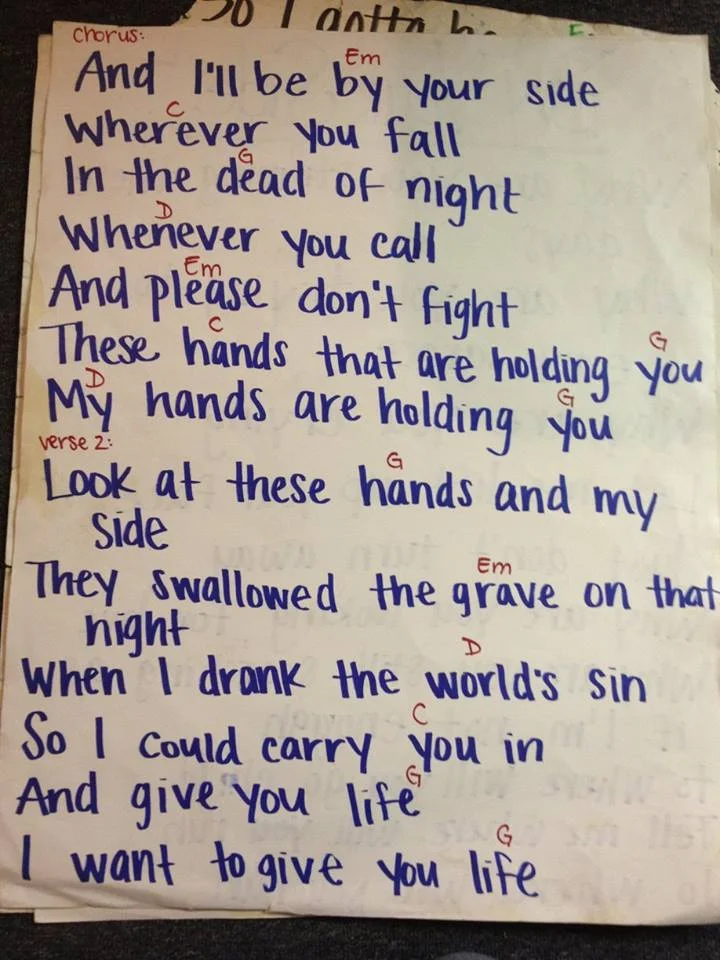 So I gotta
chorus:
Em
And I'll be by your side
C
Wherever you fall
G
In the dead of night
D
Whenever you call
Em
And please don't fight
C G
These hands that are holding you
D G
My hands are holding you
verse 2:
G
Look at these hands and my
side
Em
They swallowed the grave on that
night
D
When I drank the world's sin
C
So I could carry you in
G
And give you life
G
I want to give you life